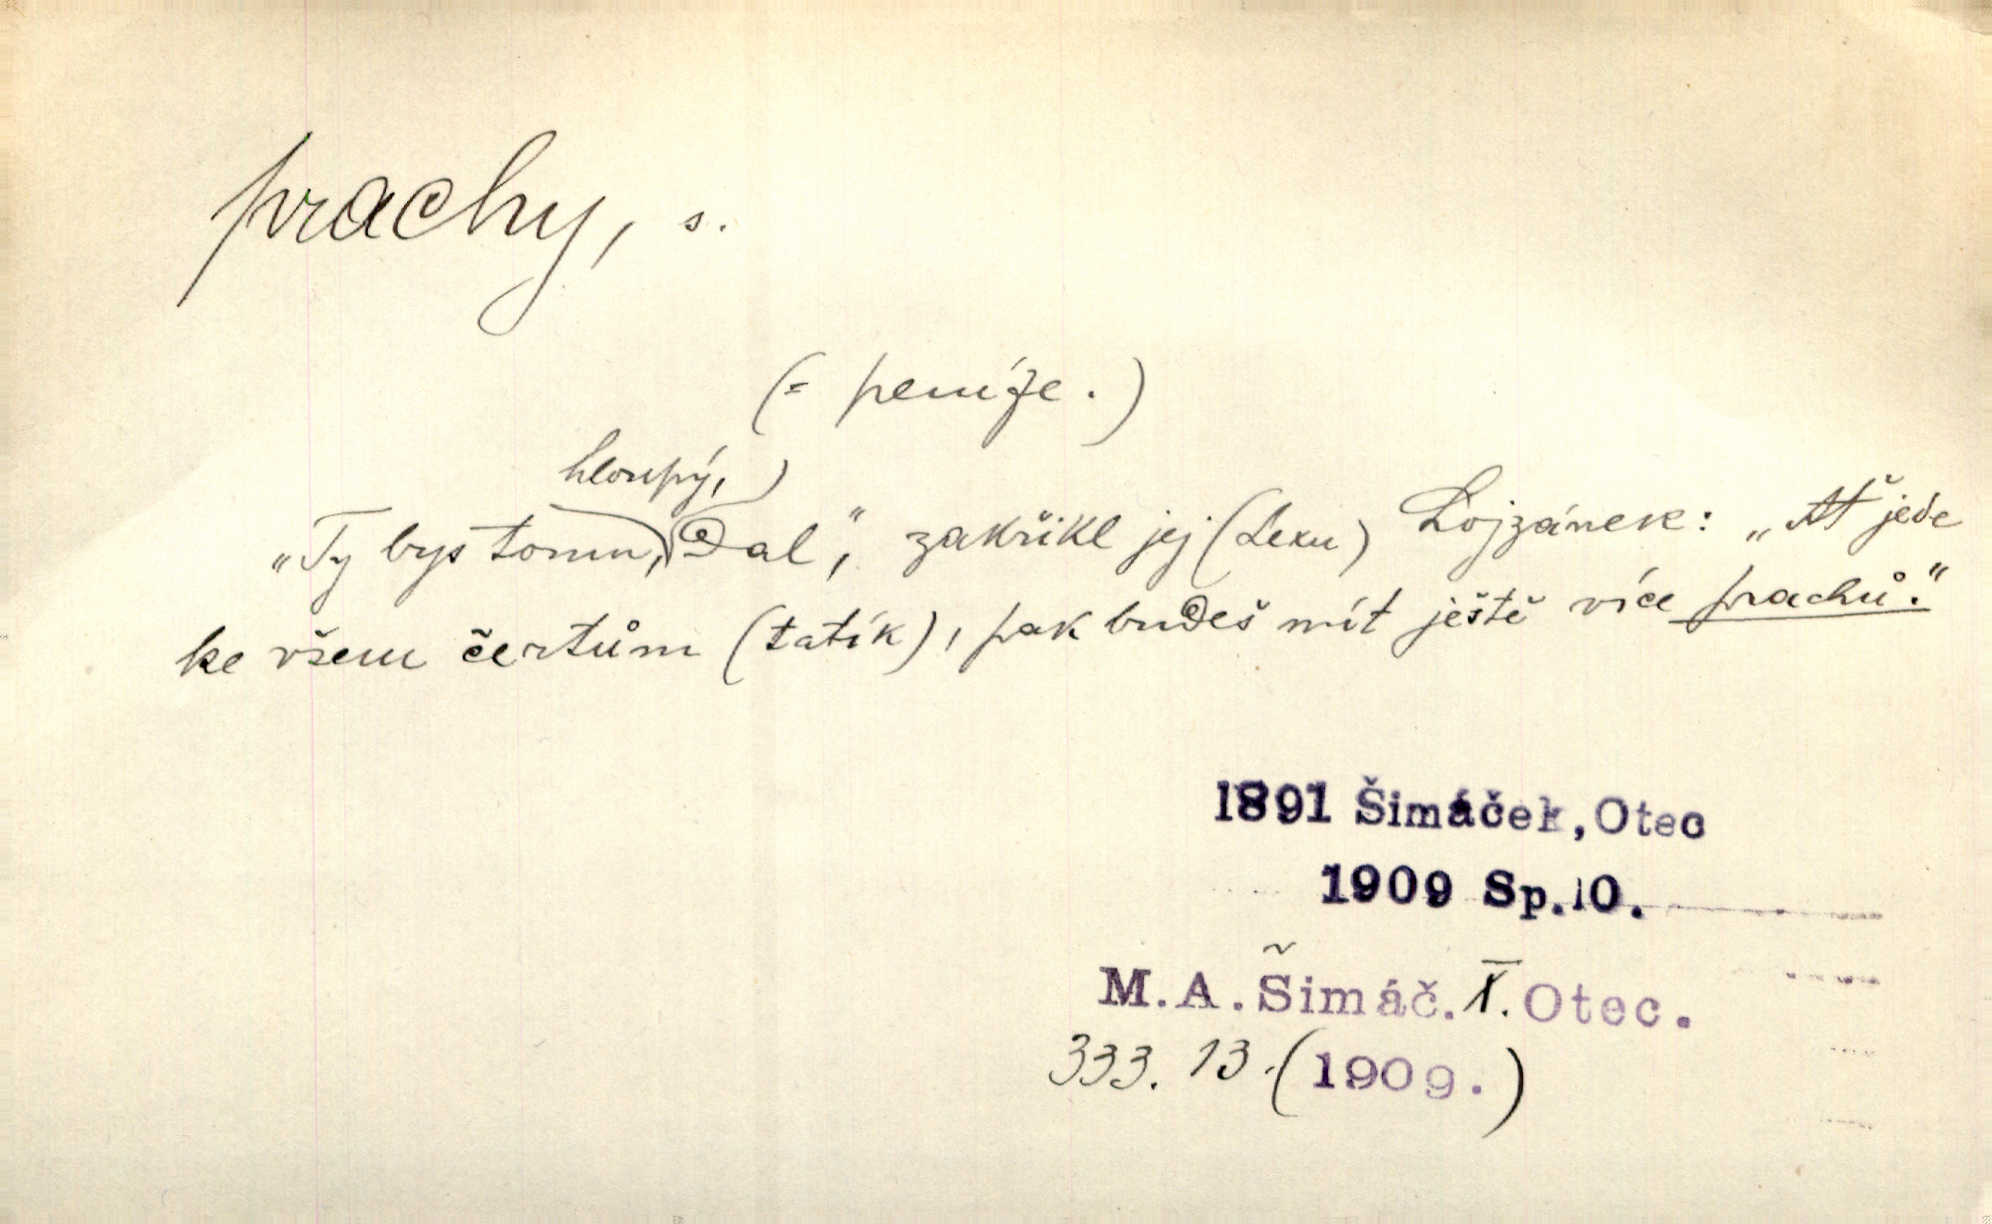 prachy, s.
(= peníze.)
hloupý,
„Ty bys tomu, dal“, zakřikl jej (Lexu) Lojzánek: „Ať jede
ke všem čertům (tatík), pak budeš mít ještě více prachů.“
1891 Šimáček, Otec
1909 Sp.10.
M.A.Šimáč.X.Otec.
333. 13.(1909.)